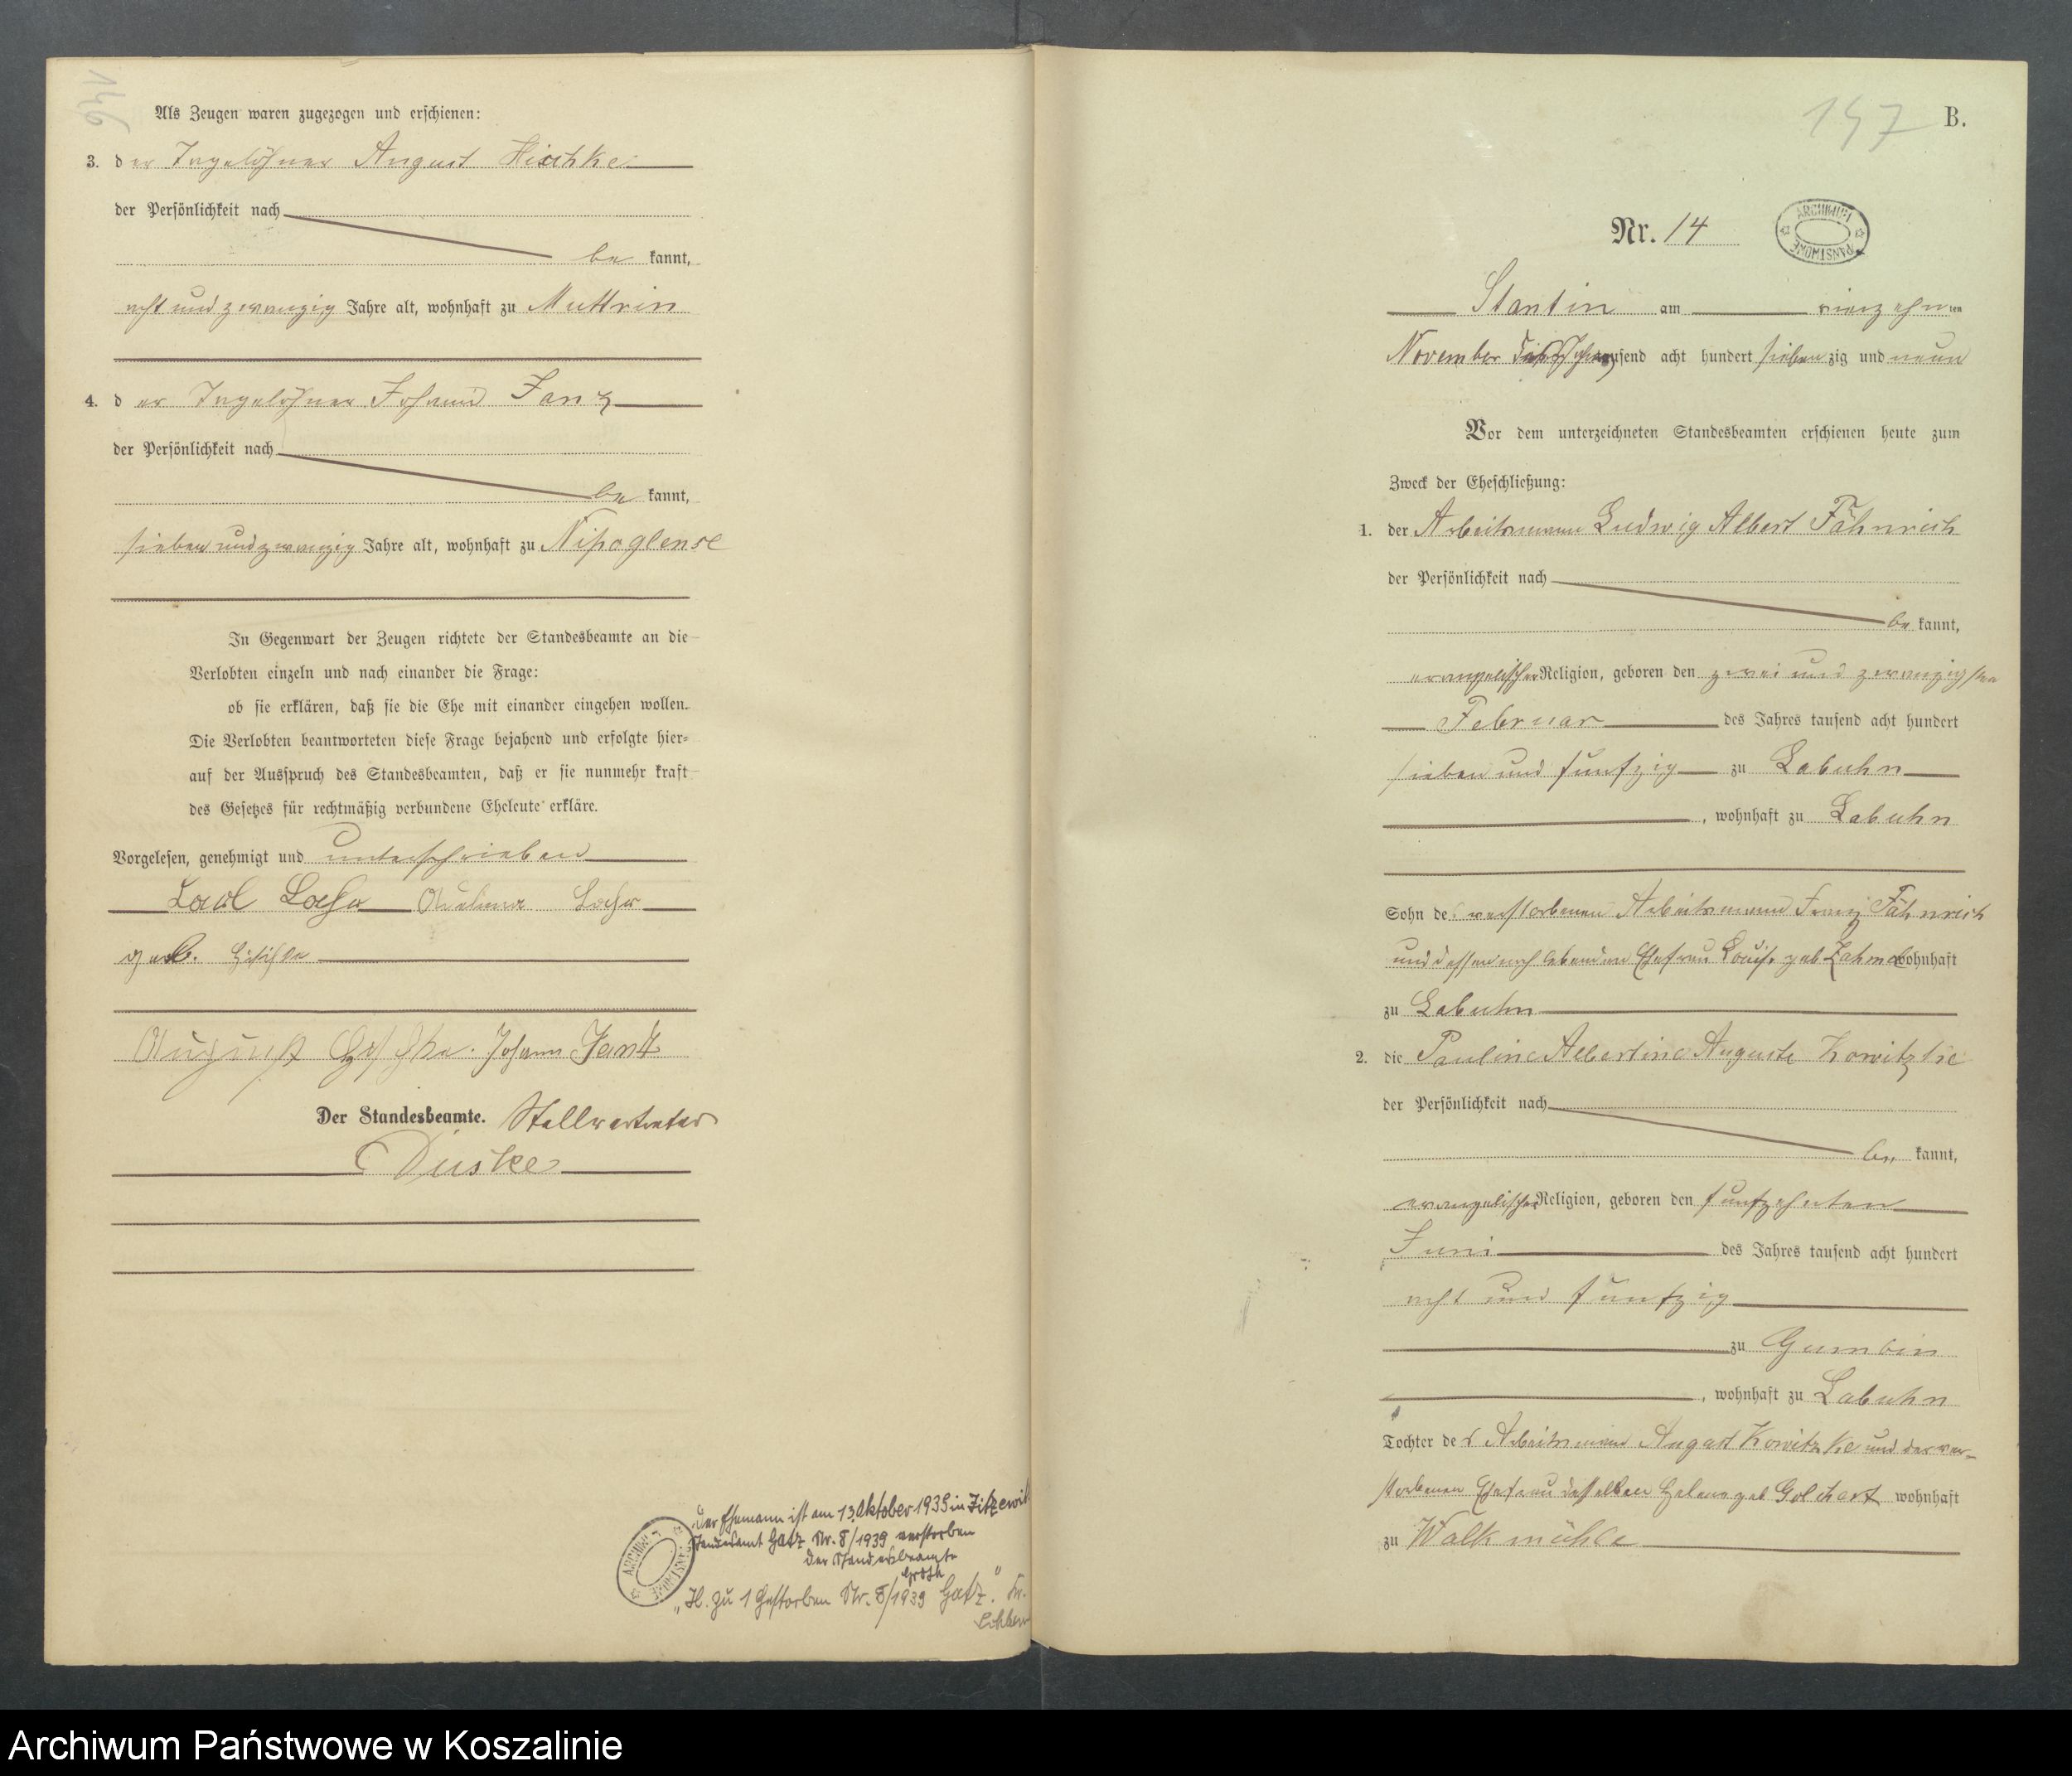 146
Als Zeugen waren zugezogen und erschienen:
3. der Tagelöhner August Hischke
der Persönlichkeit nach
be kannt,
acht und zwanzig Jahre alt, wohnhaft zu Muttrin
4. der Tagelöhner Johann Jantz
der Persönlichkeit nach
be kannt,
sieben und zwanzig Jahre alt, wohnhaft zu Nipoglense
In Gegenwart der Zeugen richtete der Standesbeamte an die
Verlobten einzeln und nach einander die Frage:
ob sie erklären, daß sie die Ehe mit einander eingehen wollen.
Die Verlobten beantworteten diese Frage bejahend und erfolgte hier-
auf der Ausspruch des Standesbeamten, daß er sie nunmehr kraft
des Gesetzes für rechtmäßig verbundene Eheleute erkläre.
Vorgelesen, genehmigt und unterschrieben
geb.
August Johann Jantz
Der Standesbeamte. Stellvertreter
Duske
Der Ehemann ist am 13. Oktober 1939 in Zitzewit
Standesamt Gatz Nr. 8/1939 verstorben
Der Standesbeamte
Groth
"H. zu 1 Gestorben Nr. 8/1939 Gatz."
ARCHIWUM PAŃSTWOWE
147 B.
Nr. 14
ARCHIWUM PAŃSTWOWE
Stantin am vierzehnten
November tausend acht hundert siebenzig und neun
Vor dem unterzeichneten Standesbeamten erschienen heute zum
Zweck der Eheschließung:
1. der Arbeitsmann Ludwig Albert Fähnrich
der Persönlichkeit nach
be kannt,
evangelischer Religion, geboren den zwei und zwanzigsten
Februar des Jahres tausend acht hundert
sieben und funfzig zu Labuhn
, wohnhaft zu Labuhn
Sohn des verstorbenen Arbeitsmann Franz Fähnrich
und dessen noch lebenden Ehefrau Louise geb wohnhaft
zu Labuhn
2. die Pauline Albertine Auguste Kowitzke
der Persönlichkeit nach
be kannt,
evangelischer Religion, geboren den funfzehnten
Juni des Jahres tausend acht hundert
acht und funfzig
zu Gumbin
, wohnhaft zu Labuhn
Tochter des Arbeitsmann August Kowitzke und der ver-
storbenen Ehefrau desselben Helene geb wohnhaft
zu Walkmühle
Archiwum Państwowe w Koszalinie